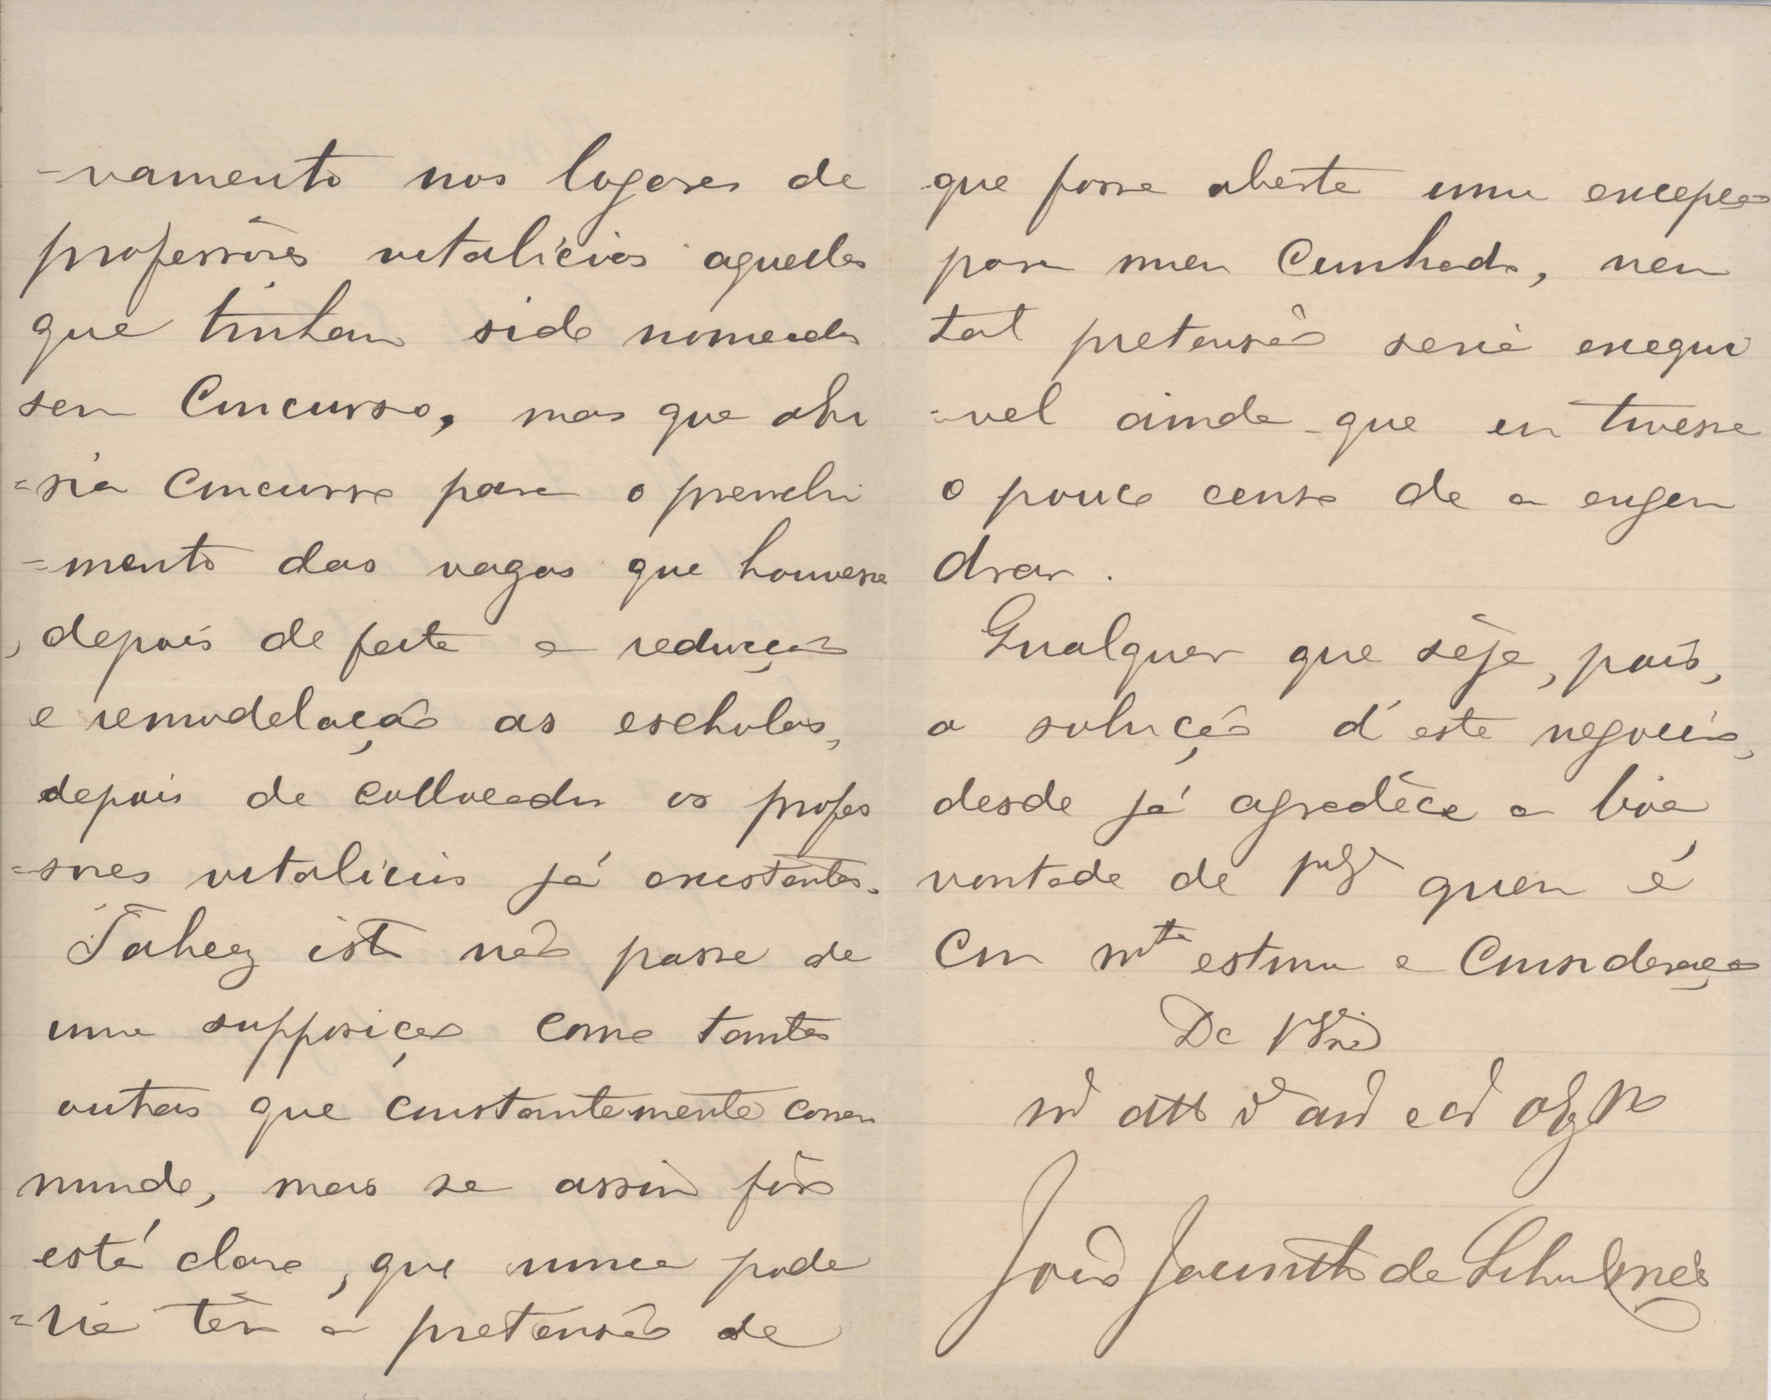 -vamente nos logares de
professôres vitalicios aquelles
que tinham sido nomeados
sem concurso, mas que abri
=ria concurso para o prenchi
=mento das vagas que houvesse
, depois de feita a reducção
e remodelação as escholas,
depois de collocados os profes
=sores vitalicios já existentes.
Talvez isto não passe de
uma supposição como tantas
outras que constantemente correm
mundo, mas se assim fôr
está claro, que nunca pode
=ria têr a pretensão de
que fosse aberta uma excepção
para meu cunhado, nem
tal pretensão seria exequi
=vel ainda que eu tivesse
o pouco censo de a engen
drar.
Qualquer que sêja, pois,
a solução d'este negocio,
desde já agradêce a bôa
vontade de quem é
com mta estima e consideração
De VExia
mo atto vor amo e co obgo
João Jacintho de